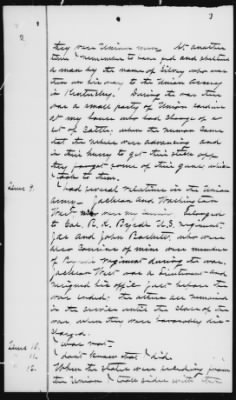 3
2
they were Union men. At another
time I remember to have fed and sheltered
a man by the name of Silvey who was
then on his way to the Union Army
in Kentucky. During the war there
was a small party of Union Soldiers
at my house who had charge of a
lot of Cattle, when the rumor came
that the rebels were advancing and
in their hurry to get their cattle off
they forgot some of their guns which
I took to them.
Item 9.
I had several relatives in the Union
Army. Jackson and Washington
West who were my belonged
to Col. R. K. Byrds U.S. regiment.
Jas and John Barnett, who were
also Cousins of mine were members
of Byrds regiment during the war.
Jackson West was a Lieutenant and
resigned his office just before the
war ended; the others all remained
in the service until the close of the
war when they were honorably dis-
charged.
Item 10.
I was not.
" 11.
I don't know that I did.
" 12.
When the States were seceding from
the Union I took sides with the